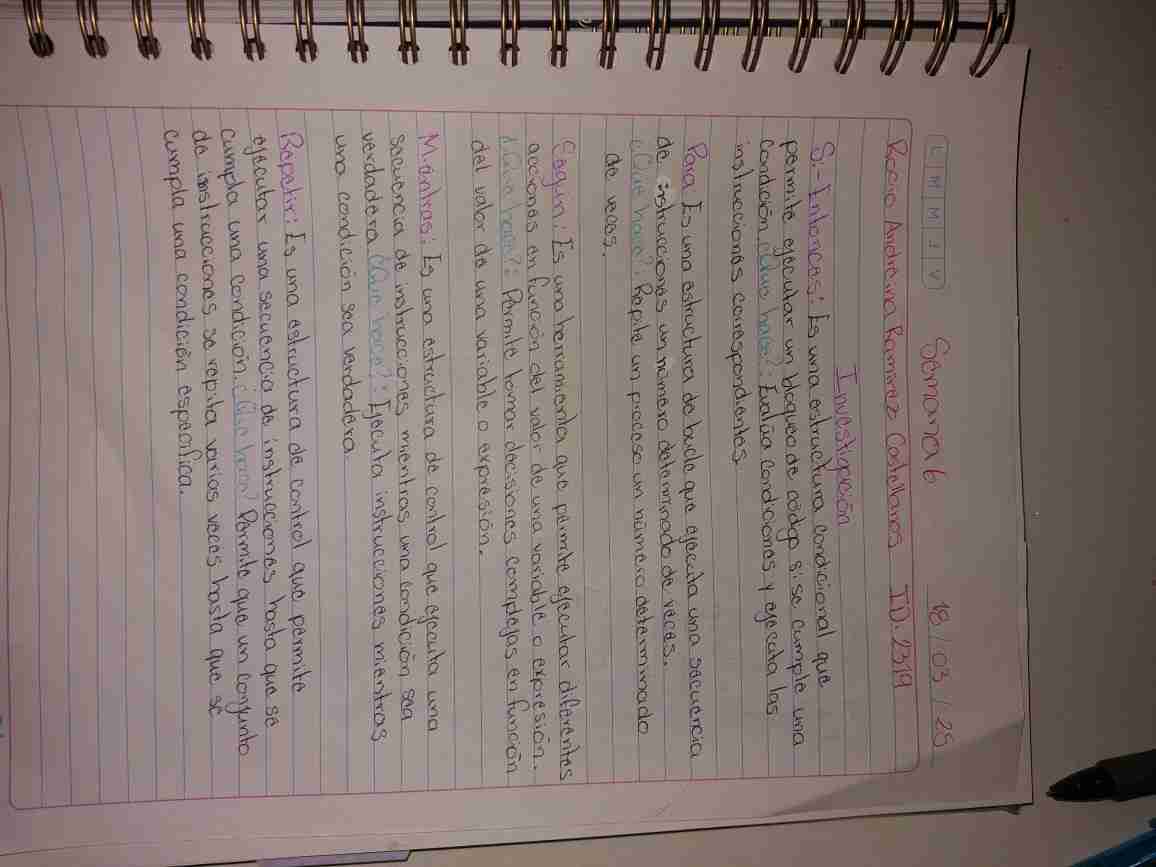 L M M J V
Semana 6
18 / 03 / 25
Rocio Andreina Ramirez Castellanos ID. 2319
Investigación
Si-Entonces: Es una estructura condicional que
permite ejecutar un bloqueo de código si se cumple una
condición ¿Que hace?: Evalúa condiciones y ejecuta las
instrucciones correspondientes.
Para Es una estructura de bucle que ejecuta una secuencia
de instrucciones un número determinado de veces.
¿Que hace?: Repite un proceso un número determinado
de veces.
Según: Es una herramienta que permite ejecutar diferentes
acciones en función del valor de una variable o expresión.
¿Que hace?: Permite tomar decisiones complejas en función
del valor de una variable o expresión.
Mientras: Es una estructura de control que ejecuta una
secuencia de instrucciones mientras una condición sea
verdadera ¿Que hace?: Ejecuta instrucciones mientras
una condición sea verdadera.
Repetir: Es una estructura de control que permite
ejecutar una secuencia de instrucciones hasta que se
cumpla una condición. ¿Que hacen? Permite que un conjunto
de instrucciones se repita varias veces hasta que se
cumpla una condición específica.